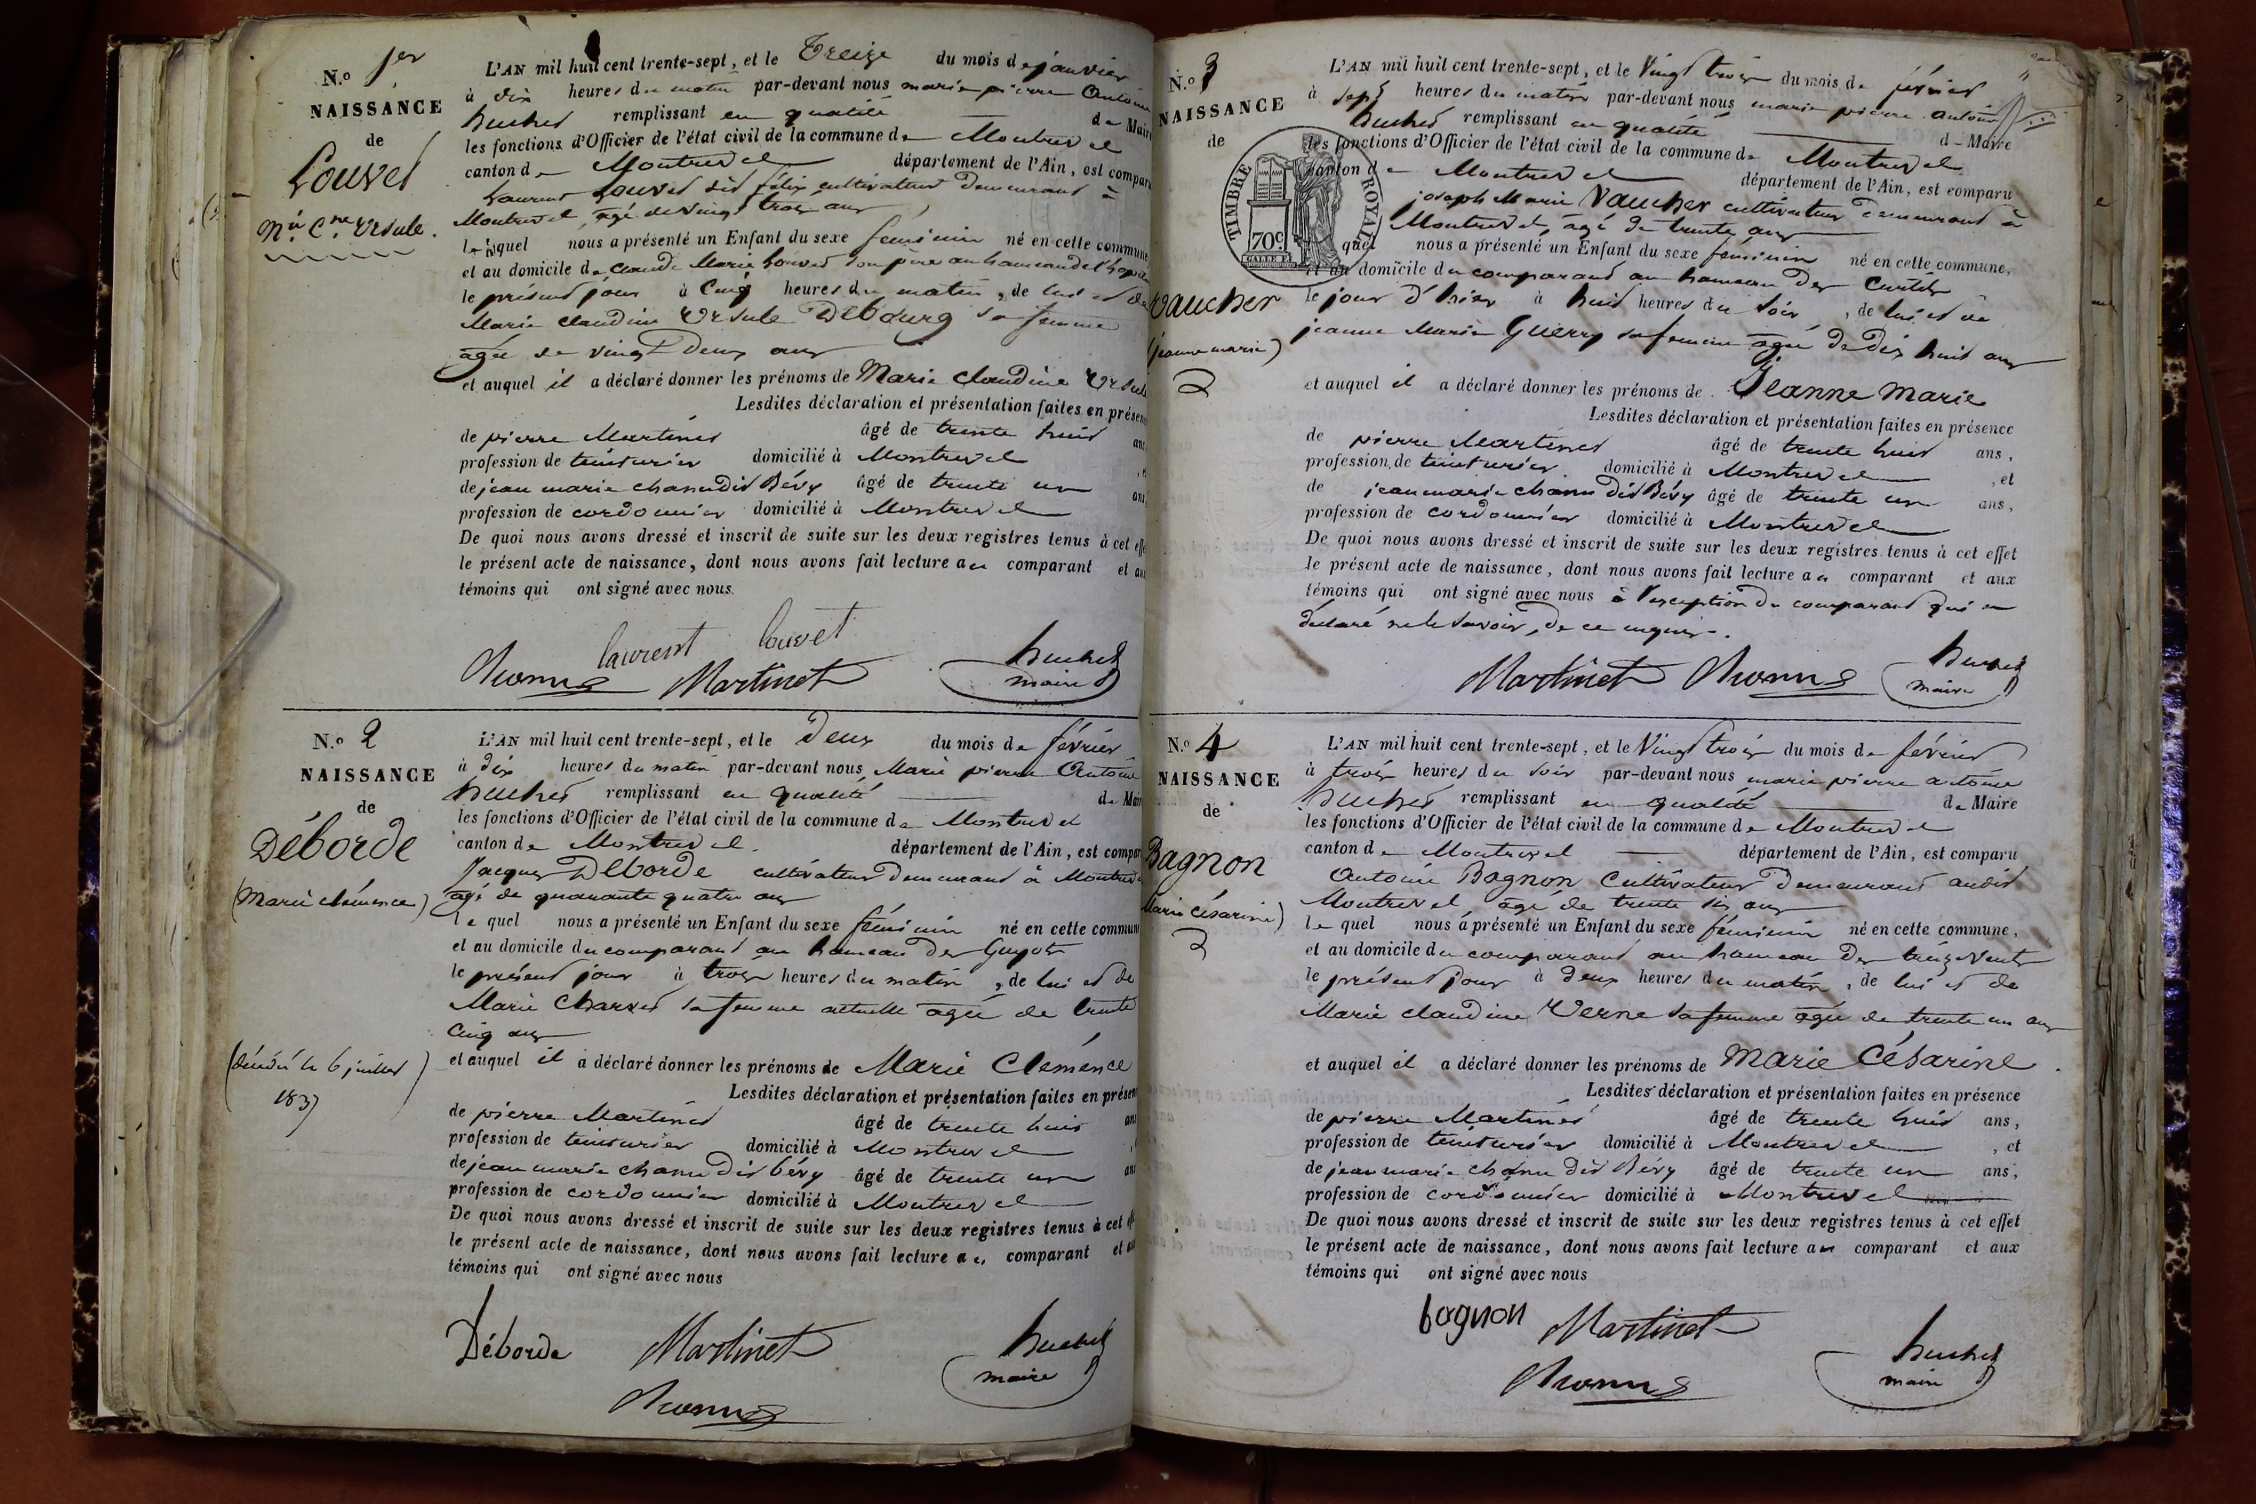 N.o 1er
NAISSANCE
de
Louvet
Mie Cne Ursule.
L'AN mil huit cent trente-sept, et le Treize du mois de janvier
à dix heures du matin par-devant nous marie pierre Antoine
huchet remplissant en qualité de Maire
les fonctions d'Officier de l'état civil de la commune de Montrevel
canton de Montrevel département de l'Ain, est comparu
Laurent Louvet dit félix cultivateur demeurant à
Montrevel, âgé de vingt trois ans
lequel nous a présenté un Enfant du sexe féminin né en cette commune
et au domicile de claude Marie Louvet son père au hameau de
le présent jour à Cinq heures du matin, de lui et de
Marie claudine Ursule Débourg sa femme
agée de vingt Deux ans
et auquel il a déclaré donner les prénoms de Marie claudine Ursule
Lesdites déclaration et présentation faites en présen
de pierre Martinet âgé de trente huit ans
profession de teinturier domicilié à Montrevel
de jean marie chanu dit Bévy âgé de trente un ans
profession de cordonnier domicilié à Montrevel
De quoi nous avons dressé et inscrit de suite sur les deux registres tenus à cet effe
le présent acte de naissance, dont nous avons fait lecture au comparant et aux
témoins qui ont signé avec nous.
laurent louvet
Martinet
huchet
maire
N.o 2
NAISSANCE
de
Déborde
(Marie clémence)
(décédée le 6 juillet
1837)
L'AN mil huit cent trente-sept, et le Deux du mois de février
à dix heures du matin par-devant nous Marie pierre Antoine
huchet remplissant en qualité de Mair
les fonctions d'Officier de l'état civil de la commune de Montrevel
canton de Montrevel. département de l'Ain, est compar
Jacques Déborde cultivateur Demeurant à Montrevel
agé de quarante quatre ans
le quel nous a présenté un Enfant du sexe féminin né en cette commun
et au domicile du comparant au hameau des Guyots
le présent jour à trois heures du matin, de lui et de
Marie Charvet sa femme actuelle agée de trente
Cinq ans
et auquel il a déclaré donner les prénoms de Marie Clémence
Lesdites déclaration et présentation faites en présen
de pierre Martinet âgé de trente huit ans
profession de teinturier domicilié à Montrevel
de jean marie chanu Dit bévy âgé de trente un ans
profession de cordonnier domicilié à Montrevel
De quoi nous avons dressé et inscrit de suite sur les deux registres tenus à cet eff
le présent acte de naissance, dont nous avons fait lecture au comparant et au
témoins qui ont signé avec nous
Déborde Martinet
huchet
maire
N.o 3
NAISSANCE
de
TIMBRE ROYAL
70c
Vaucher
(jeanne marie)
2
L'AN mil huit cent trente-sept, et le Vingt trois du mois de février
à sept heures du matin par-devant nous marie pierre antoine
huchet remplissant en qualité de Maire
les fonctions d'Officier de l'état civil de la commune de Montrevel
canton de Montrevel département de l'Ain, est comparu
joseph Marie Vaucher cultivateur demeurant à
Montrevel, âgé de trente ans
quel nous a présenté un Enfant du sexe féminin né en cette commune,
et au domicile du comparant au hameau des
le jour d'hier à huit heures du soir, de lui et de
jeanne Marie Guerry sa femme agée de dix huit ans
et auquel il a déclaré donner les prénoms de Jeanne Marie
Lesdites déclaration et présentation faites en présence
de pierre Martinet âgé de trente huit ans,
profession de teinturier domicilié à Montrevel, et
de jean marie chanu Dit Bévy âgé de trente un ans,
profession de cordonnier domicilié à Montrevel
De quoi nous avons dressé et inscrit de suite sur les deux registres tenus à cet effet
le présent acte de naissance, dont nous avons fait lecture au comparant et aux
témoins qui ont signé avec nous à l'exception du comparant qui a
déclaré ne le savoir, de ce enquis.
Martinet
huchet
maire
N.o 4
NAISSANCE
de
Bagnon
Marie Césarine)
2
L'AN mil huit cent trente-sept, et le Vingt trois du mois de février
à trois heures du soir par-devant nous marie pierre antoine
huchet remplissant en qualité de Maire
les fonctions d'Officier de l'état civil de la commune de Montrevel
canton de Montrevel département de l'Ain, est comparu
Antoine Bagnon Cultivateur Demeurant audit
Montrevel âgé de trente six ans
le quel nous a présenté un Enfant du sexe féminin né en cette commune,
et au domicile du comparant au hameau des treize Vents
le présent jour à deux heures du matin, de lui et de
Marie claudine Verne sa femme agée de trente un ans
et auquel il a déclaré donner les prénoms de Marie Césarine.
Lesdites déclaration et présentation faites en présence
de pierre Martinet âgé de trente huit ans,
profession de teinturier domicilié à Montrevel, et
de jean marie chanu Dit Bévy âgé de trente un ans,
profession de cordonnier domicilié à Montrevel
De quoi nous avons dressé et inscrit de suite sur les deux registres tenus à cet effet
le présent acte de naissance, dont nous avons fait lecture au comparant et aux
témoins qui ont signé avec nous
bagnon Martinet
huchet
maire